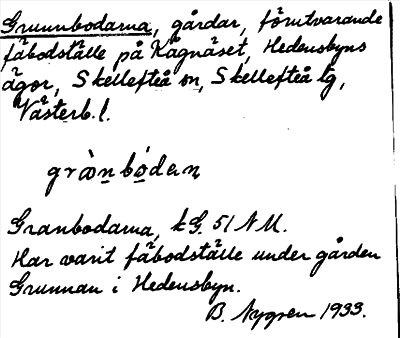 Grunnbodarna, gårdar, förutvarande
fäbodställe på Kågnäset, Hedensbyns
ägor, Skellefteå sn, Skellefteå tg,
Västerb. l.
Granbodarna, k G. 51 NM.
Har varit fäbodställe under gården
Grunnan i Hedensbyn.
B. Nygren 1933.